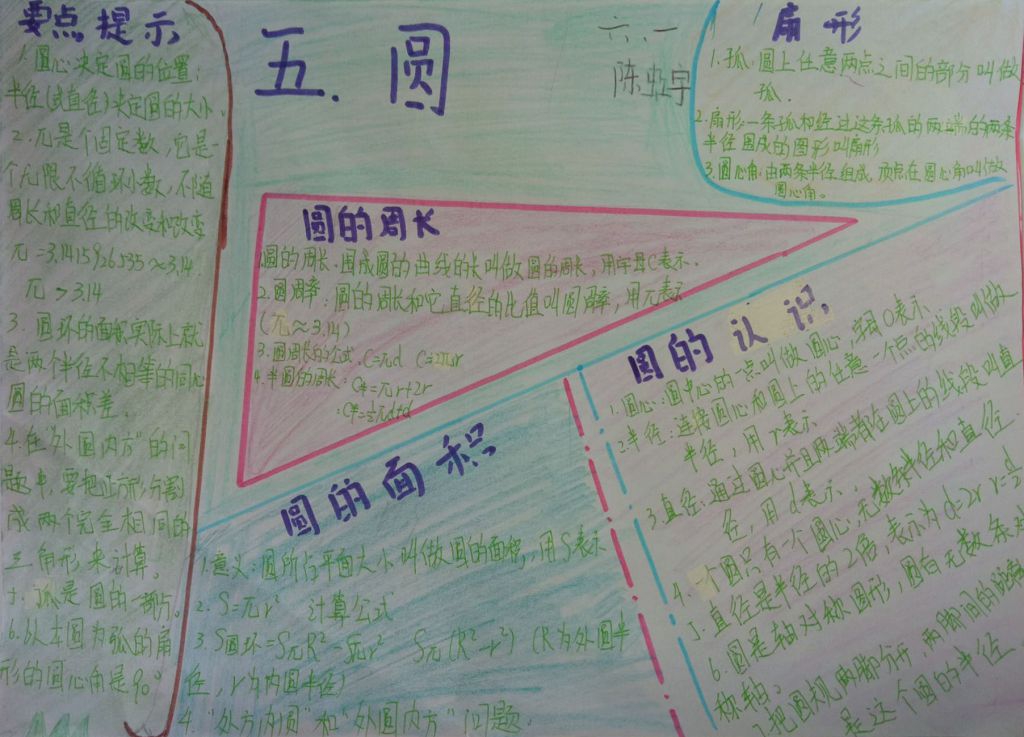 要点提示
1.圆心决定圆的位置;
半径(或直径)决定圆的大小。
2.π是个固定数,它是一
个无限不循环小数,不随
周长和直径的改变和改变
π=3.1415926535≈3.14.
π>3.14
3.圆环的面积实际上就
是两个半径不相等的同心
圆的面积差。
4.在"外圆内方"的问
题中,要把正方形分割
成两个完全相同的
三角形来计算。
5.孤是圆的一部分。
6.以本圆为孤的扇
形的圆心角是90°
五.圆
六、一
扇形
1.孤:圆上任意两点之间的部分叫做
孤.
2.扇形一条孤和经过这条孤的两端的两条
半径围成的图形叫扇形
3.圆心角:由两条半径组成,顶点在圆心角叫做
圆心角。
圆的周长
1.圆的周长.围成圆的曲线的长叫做圆的周长,用字母C表示.
2.圆周率:圆的周长和它直径的比值叫圆周率,用π表示
(π≈3.14)
3.圆周长的公式.C=πd C=2πr
4.半圆的周长:C半=πr+2r
:C半=½πd+d
圆的认识
1.圆心:圆中心的一点叫做圆心,字母O表示.
2.半径:连接圆心和圆上的任意一个点的线段叫做
半径,用r表示
3.直径:通过圆心并且两端都在圆上的线段叫直
径,用d表示.
4.一个圆只有一个圆心,无数条半径和直径
5.直径是半径的2倍,表示为d=2r r=½
6.圆是轴对称图形,圆有无数条对
称轴.
7.把圆规两脚分开,两脚间的距离
是这个圆的半径.
圆的面积
1.意义:圆所占平面大小叫做圆的面积,用S表示
2.S=πr² 计算公式
3.S圆环=SπR²-Sπr² Sπ(R²-r²)(R为外圆半
径,r为内圆半径)
4."外方内圆"和"外圆内方"问题.